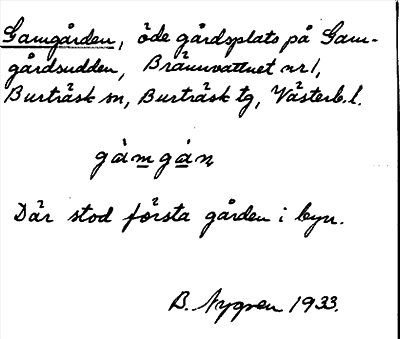 Gamgården, öde gårdsplats på Gam-
gårdsudden, Brännvattnet nr 1,
Burträsk sn, Burträsk tg, Västerb.l.
gàmgán
Där stod första gården i byn.
B. Nygren 1933.